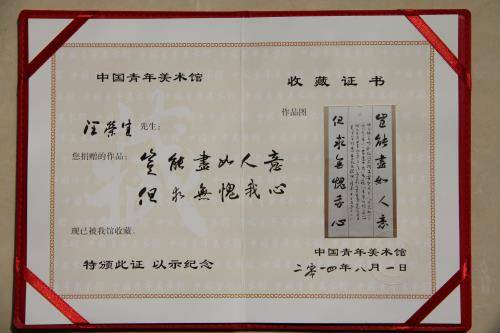 中国青年美术馆
汪荣生 先生：
您捐赠的作品：岂能盡如人意
但求無愧我心
现已被我馆收藏。
特颁此证 以示纪念
收藏证书
作品图
豈能盡如人意
但求無愧我心
中国青年美术馆
二零一四年八月一日